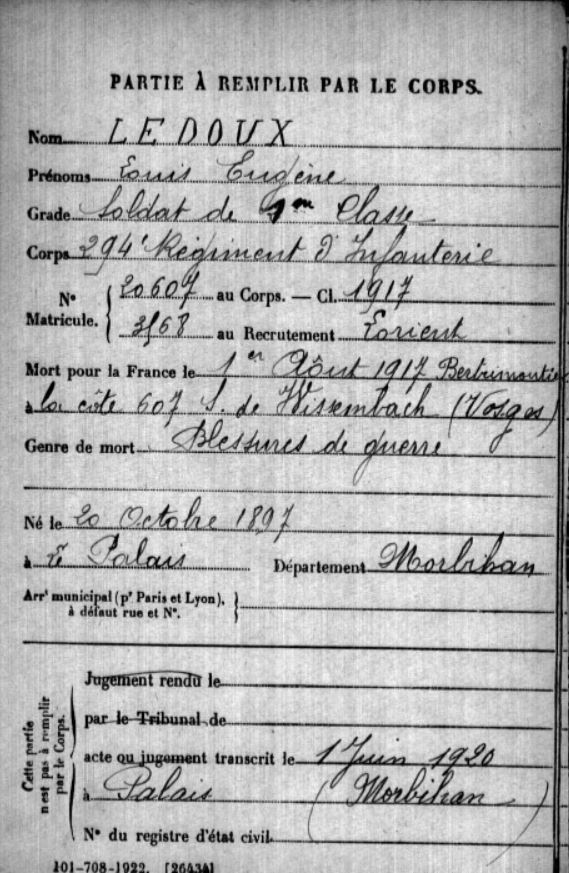 PARTIE À REMPLIR PAR LE CORPS.
Nom LEDOUX
Prénoms Louis Eugène
Grade Soldat de 1re Classe
Corps 294e Régiment d'Infanterie
N° Matricule. { 20607 au Corps. — Cl. 1917
3168 au Recrutement Lorient
Mort pour la France le 1er Août 1917 Bertrimoutier
à la côte 607 S. de Wissembach (Vosges)
Genre de mort Blessures de guerre
Né le 20 Octobre 1897
à Le Palais Département Morbihan
Arrt municipal (pr Paris et Lyon), à défaut rue et N°. }
Cette partie n'est pas à remplir par le Corps.
Jugement rendu le
par le Tribunal de
acte ou jugement transcrit le 1 Juin 1920
à Palais (Morbihan)
N° du registre d'état civil
101-708-1922. [26434]